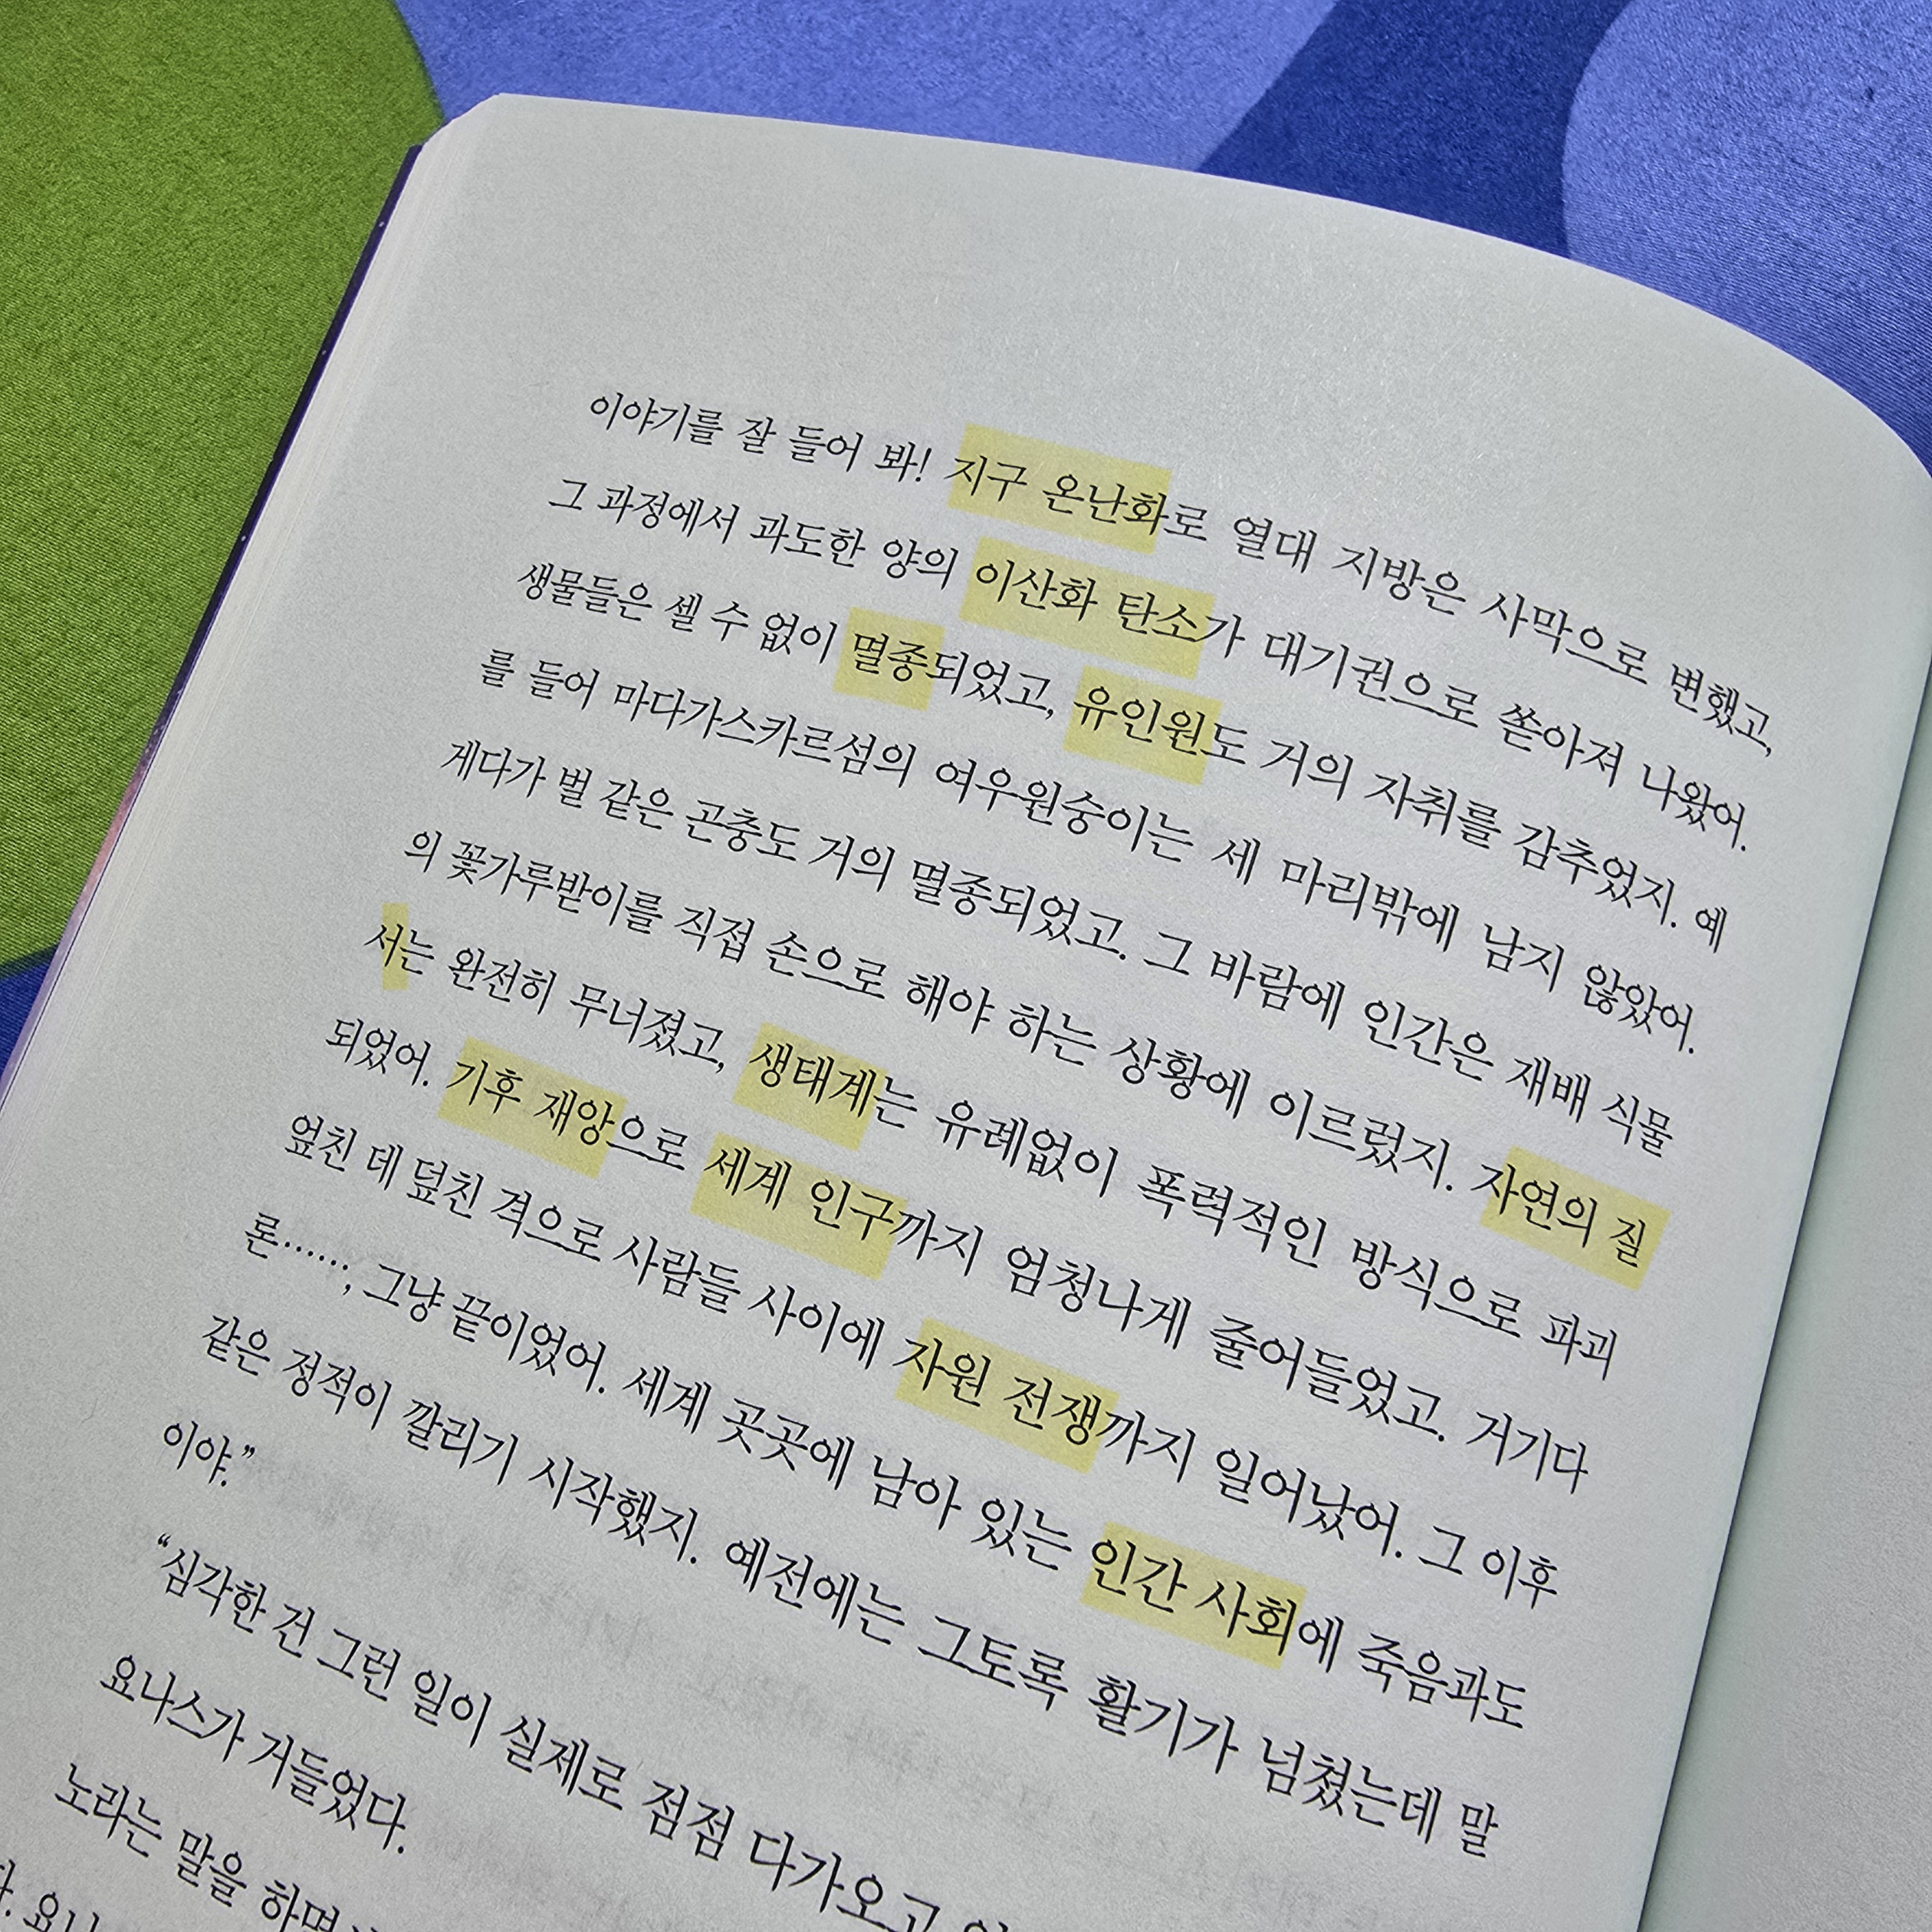 이야기를 잘 들어 봐! 지구 온난화로 열대 지방은 사막으로 변했고,
그 과정에서 과도한 양의 이산화 탄소가 대기권으로 쏟아져 나왔어.
생물들은 셀 수 없이 멸종되었고, 유인원도 거의 자취를 감추었지. 예
를 들어 마다가스카르섬의 여우원숭이는 세 마리밖에 남지 않았어.
게다가 벌 같은 곤충도 거의 멸종되었고. 그 바람에 인간은 재배 식물
의 꽃가루받이를 직접 손으로 해야 하는 상황에 이르렀지. 자연의 질
서는 완전히 무너졌고, 생태계는 유례없이 폭력적인 방식으로 파괴
되었어. 기후 재앙으로 세계 인구까지 엄청나게 줄어들었고. 거기다
엎친 데 덮친 격으로 사람들 사이에 자원 전쟁까지 일어났어. 그 이후
론……, 그냥 끝이었어. 세계 곳곳에 남아 있는 인간 사회에 죽음과도
같은 정적이 깔리기 시작했지. 예전에는 그토록 활기가 넘쳤는데 말
이야.”
“심각한 건 그런 일이 실제로 점점 다가오고
요나스가 거들었다.
노라는 말을 하면